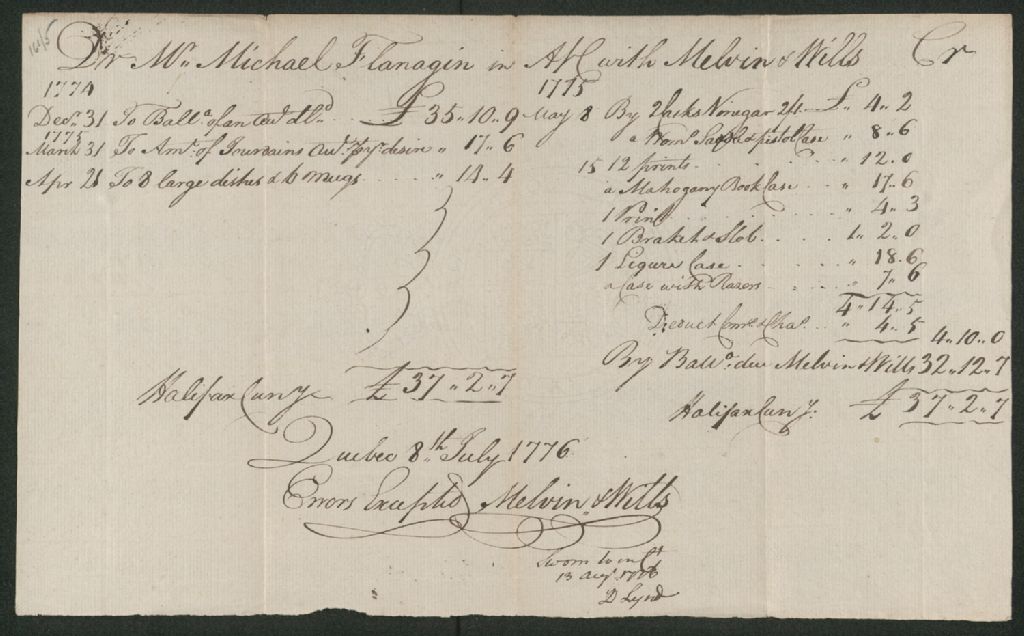 1615
Dr Mr. Michael Flanagin in A/C with Melvin & Wills Cr
1774
Decr. 31 To Balle. of an Accot. dld. £ 35 .. 10 .. 9
1775
March 31 To Amt. of Accot. desire " 17 .. 6
Apr 21 To 8 large dishes & 6 mugs " 14 .. 4
Halifax Curry £ 37 .. 2 .. 7
1775
May 8 By 2 Jacks Vinegar 2/1 £ " 4 .. 2
a Case " 8 .. 6
15 12 prints " 12 .. 0
a Mahogany Book Case " 17 .. 6
1 Print " 4 .. 3
1 Braket & Slob 1 .. 2 .. 0
1 Liqure Case " 18 .. 6
a Case with Razors " 7 .. 6
4 .. 14 .. 5
Deduct & Cha. " 4 .. 5 4 .. 10 .. 0
By Balle. due Melvin & Wills 32 .. 12 .. 7
Halifax Curry: £ 37 .. 2 .. 7
Quebec 8th July 1776
Errors Excepted Melvin & Wills
Sworn to in Ct
13 Augt 1776
D Lynd